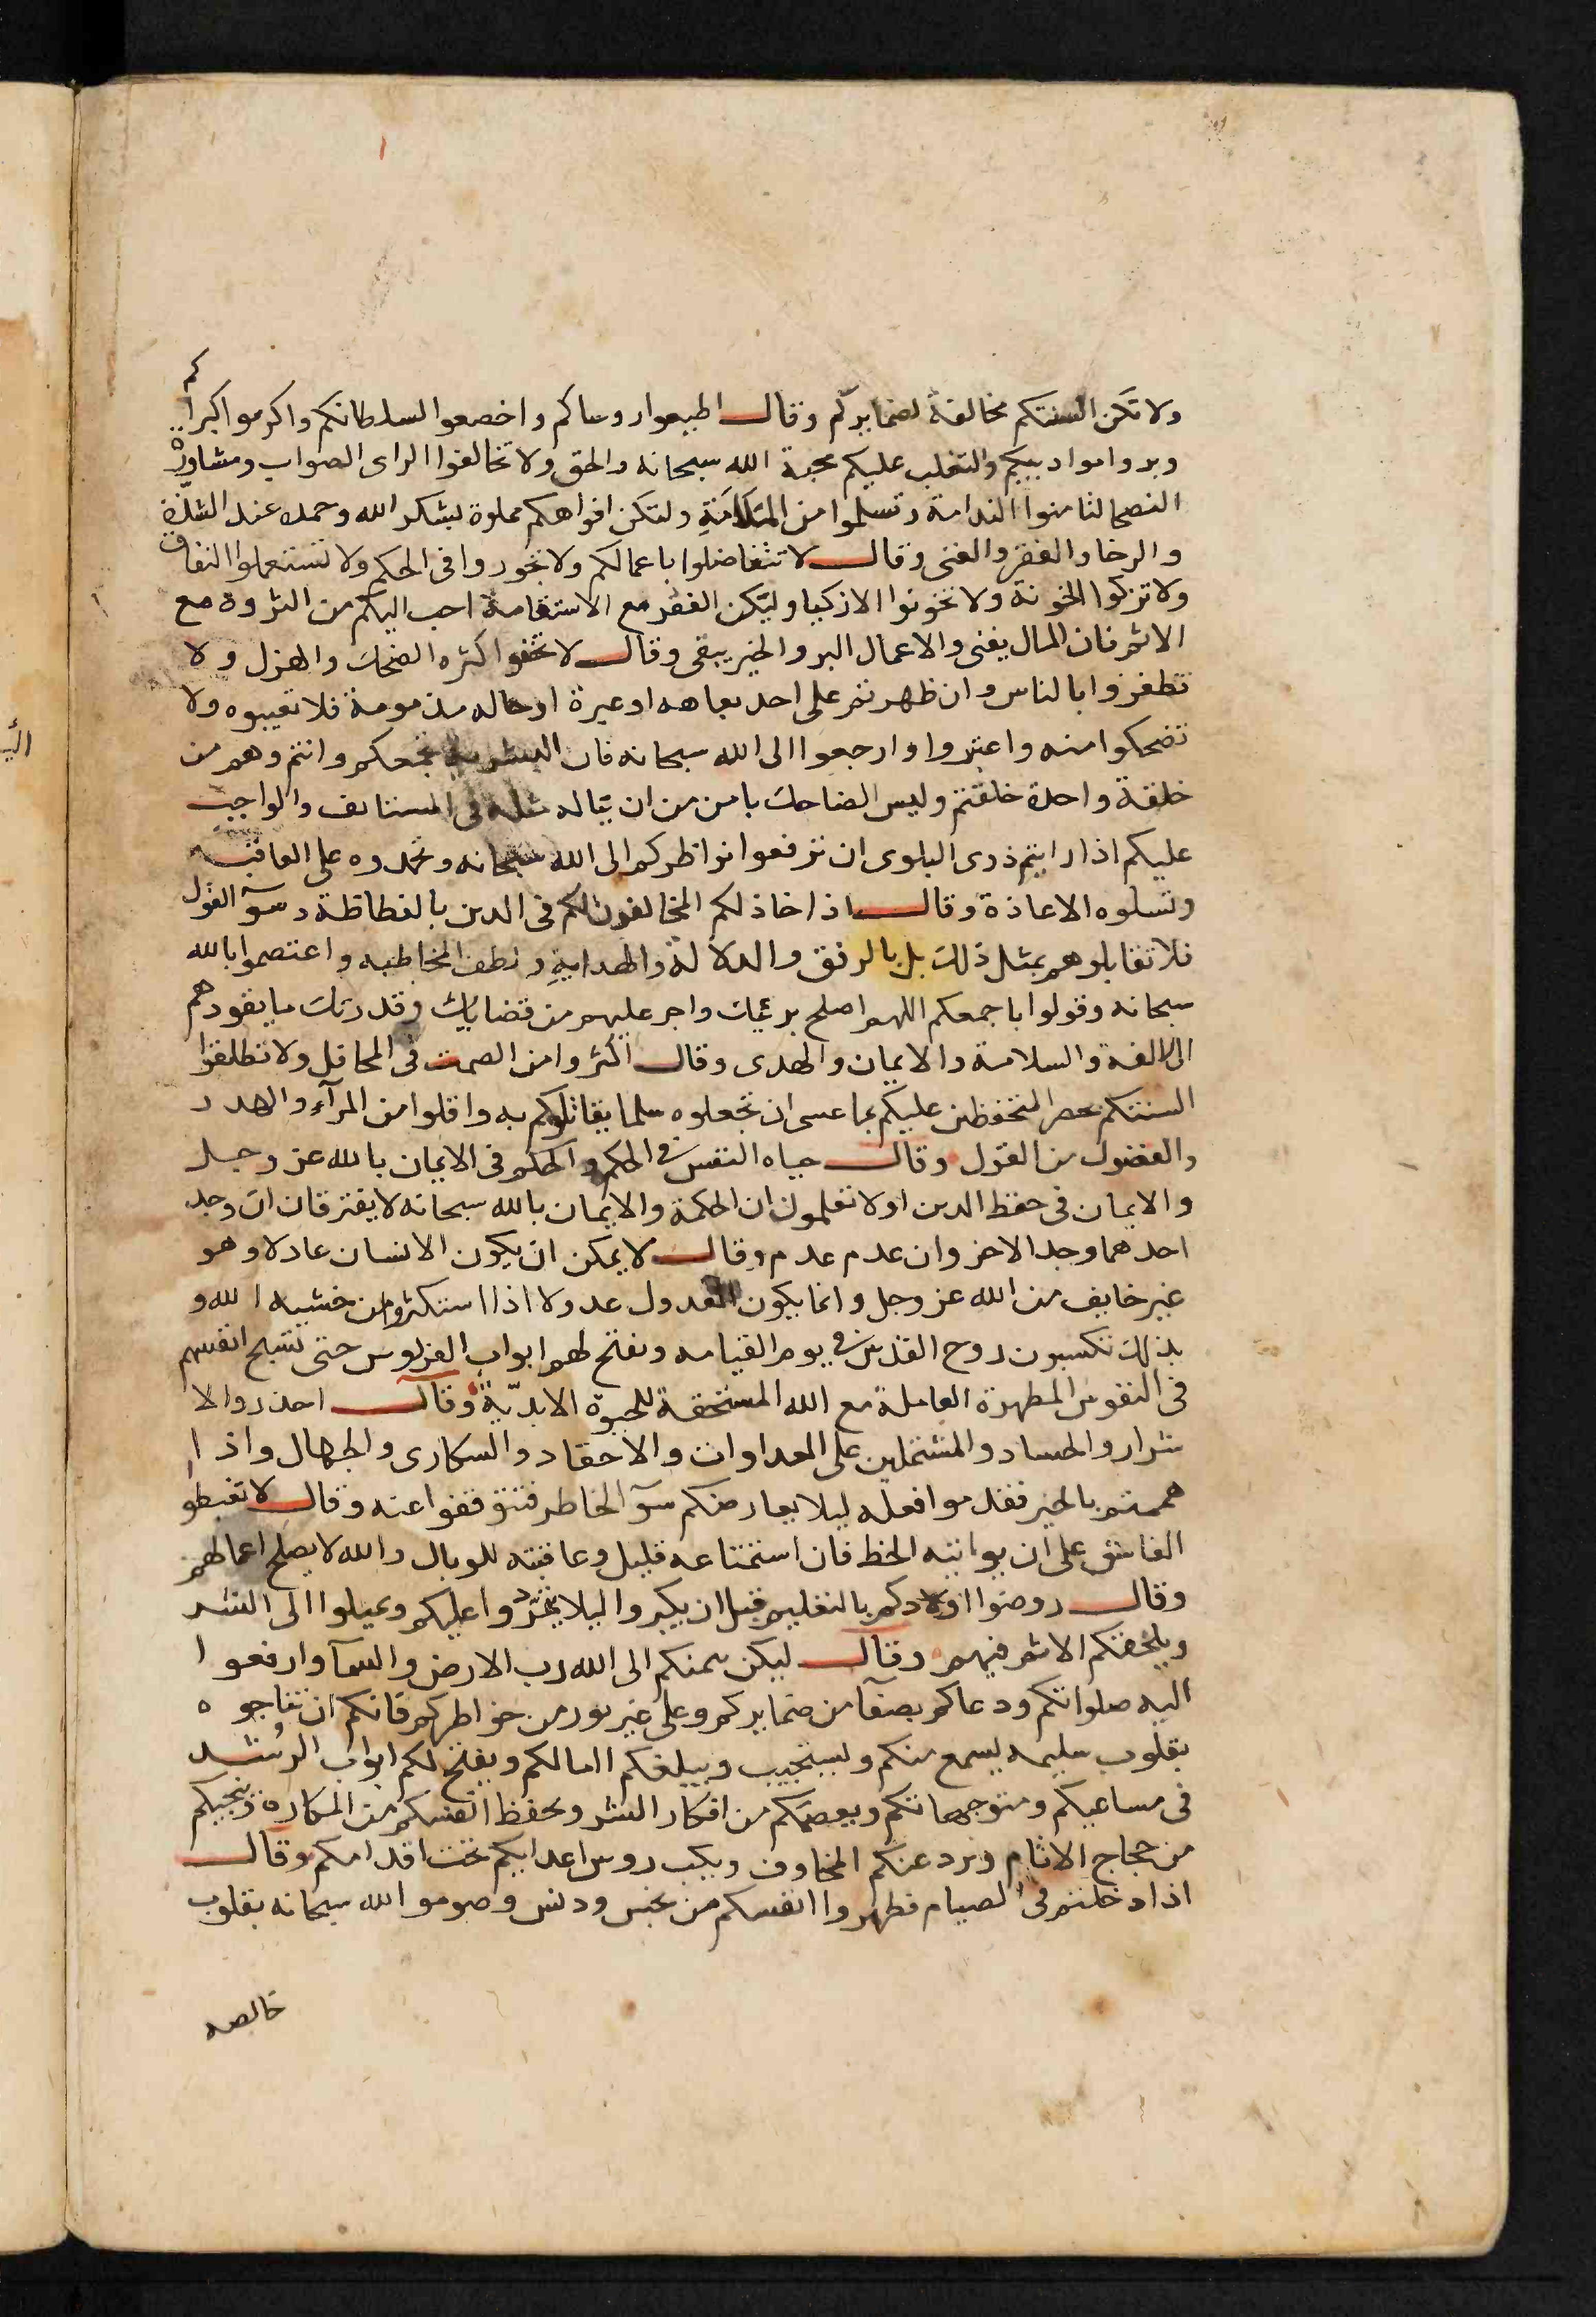 ولا تكن السنتكم مخالفة لضمايركم وقال اطيعوا روساكم واخضعوا لسلطانكم واكرموا اكبراكم
وبروا موادبيكم والتغلب عليكم محبة الله سبحانه والحق ولا تخالفوا الراى الصواب ومشاورة
النصحا لتامنوا الندامة وتسلموا من الملامة ولتكن افواهكم مملوة لشكر الله وحمده عند الشدة
والرخا والفقر والغنى وقال لا تتفاضلوا باعمالكم ولا تجوروا فى الحكم ولا تستعملوا النفاق
ولا تزكوا الخونة ولا تخونوا الازكيا وليكن الفقر مع الاستقامة احب اليكم من الثروة مع
الاثم فان المال يفنى والاعمال البر والخير يبقى وقال لا تحفوا كثره الضحك والهزل ولا
تطفزوا بالناس وان ظهر ثم على احد بعاهه او عيرة او حاله مذمومة فلا تعيبوه ولا
تضحكوا منه واعتبروا وارجعوا الى الله سبحانه فان البشريه تجمعكم وانتم وهم من
خلقة واحدة خلقتم وليس الضاحك بامن من ان يناله مثله فى المستانف والواجب
عليكم اذا رايتم ذوى البلوى ان ترفعوا نواظركم الى الله سبحانه وتحمدوه على العافيه
وتسلوه الاعاذة وقال اذا خاذلكم المخالفون لكم فى الدين بالفظاظة وسوء القول
فلا تقابلوهم بمثل ذلك بل بالرفق والدلالة والهداية ولطف المخاطبه واعتصموا بالله
سبحانه وقولوا باجمعكم اللهم اصلح بريتك واجر عليهم من قضايك وقدرتك ما يقودهم
الى الالفة والسلامة والايمان والهدى وقال اكثروا من الصمت فى المحافل ولا تطلقوا
السنتكم بحضر المتحفظين عليكم بما عسى ان تجعلوه سلما يقاتلوكم به واقلوا من المرآء والهدر
والفضول من القول وقال حياه النفس فى الحكم والحكم فى الايمان بالله عز وجل
والايمان فى حفظ الدين اولا تعلمون ان الحكمة والايمان بالله سبحانه لا يفترقان ان وجد
احدهما وجد الاخر وان عدم عدم وقال لا يمكن ان يكون الانسان عادلا وهو
غير خايف من الله عز وجل وانما يكون العدول عدولا اذا استكثروا من خشيه الله و
بذلك تكسبون روح القدس فى يوم القيامه ونفتح لهم ابواب الفردوس حتى تسبح انفسهم
فى النفوس المطهرة العاملة مع الله المستحقة للحيوة الابديّة وقال احذروا الا
شرار والحساد والمشتملين على العداوات والاحقاد والسكارى والجهال واذا
هممتم بالخير فقدموا فعله ليلا يعارضكم سوء الخاطر فتتوقفوا عنه وقال لا تغبطوا
الفاسق على ان يواتيه الحظ فان استمتاعه قليل وعاقبته للوبال والله لا يصلح اعمالهم
وقال روضوا اولادكم بالتعليم قبل ان يكبروا ليلا يتمردوا عليكم ويميلوا الى الشر
ويلحقكم الاثم فيهم وقال ليكن سمتكم الى الله رب الارض والسمآ وارفعوا
اليه صلواتكم ودعاكم بصفآ من ضمايركم وعلى غير بور من خواطركم فانكم ان تناجوه
بقلوب سليمه يسمع منكم ويستجيب ويبلغكم امالكم ويفتح لكم ابواب الرشد
فى مساعيكم ومتوجهاتكم ويعصمكم من افكار الشر ويحفظ انفسكم من المكاره وينجيكم
من حجاج الاثام ويرد عنكم المخاوف ويكبب روس اعدايكم تحت اقدامكم وقال
اذا دخلتم فى الصيام فطهروا انفسكم من نجس ودنس وصوموا لله سبحانه بقلوب
خالصه